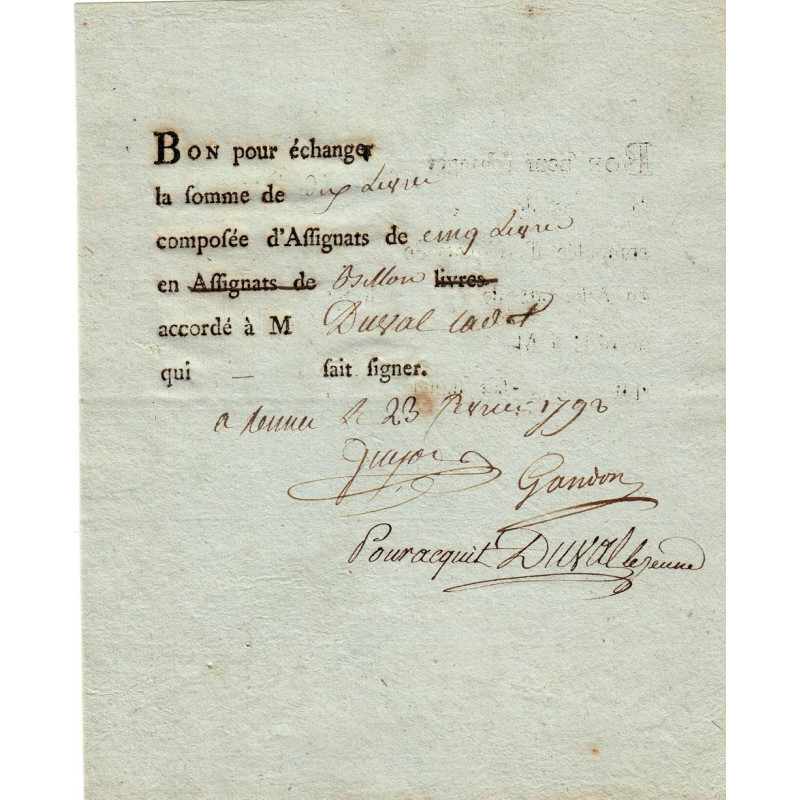 BON pour échanger
la ſomme de dix Livres
compoſée d'Aſſignats de cinq Livres
en Aſſignats de Billon livres
accordé à M Duval cadet
qui — ſait ſigner.
a le 23 fevrier 1792
Gandon
Pouracquit DUVAL le jeune